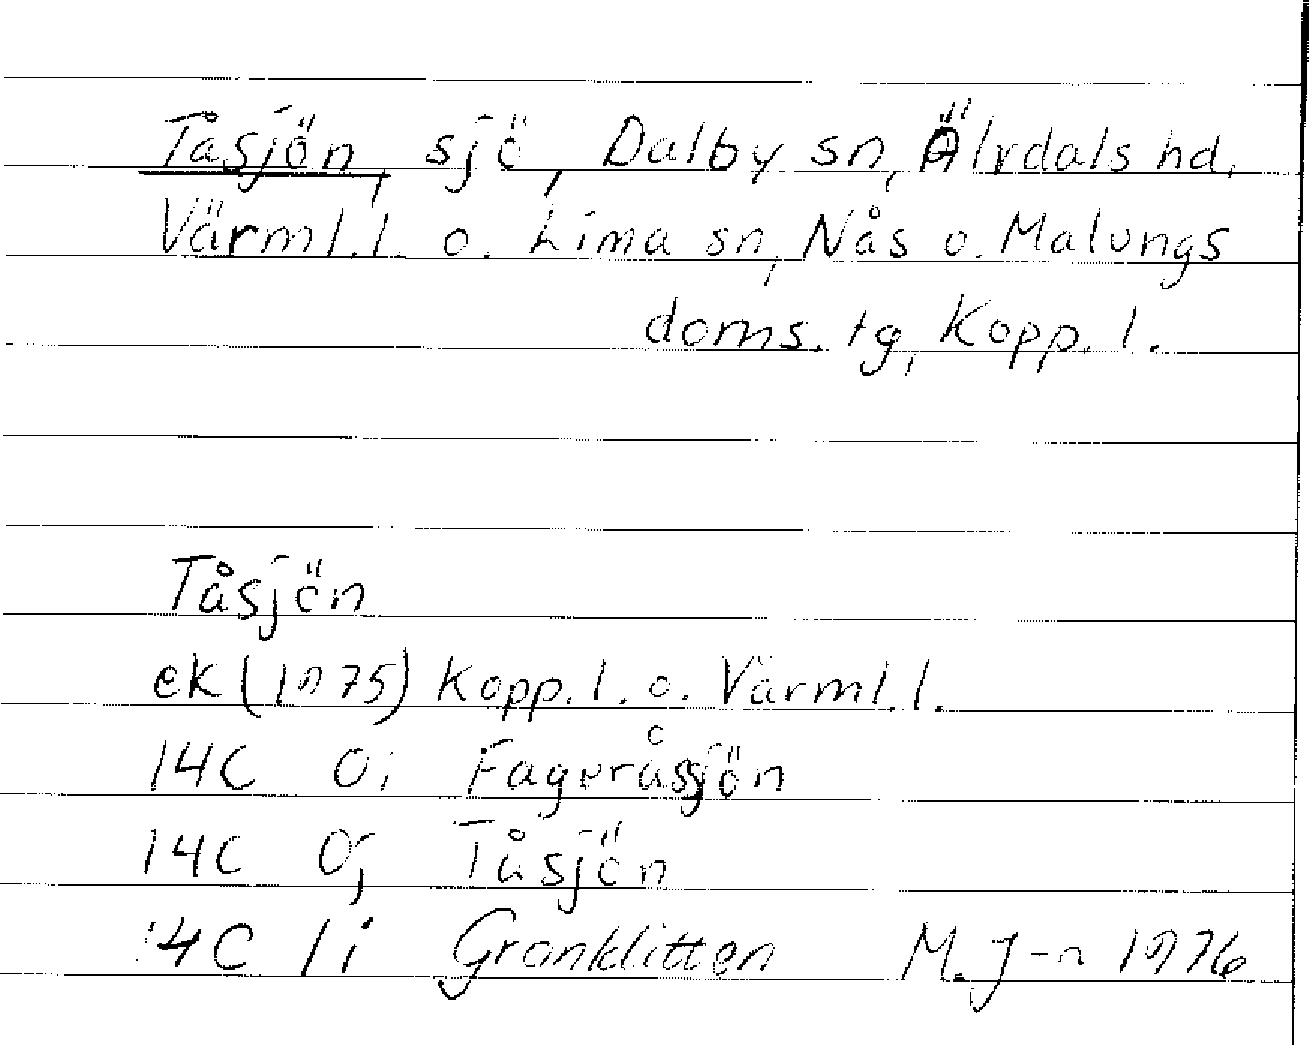 Tåsjön, sjö, Dalby sn, Älvdals hd,
Värml.l. o. Lima sn, Nås o. Malungs
doms. tg, Kopp. l.
Tåsjön
ek (1975) Kopp. l. o. Värml. l.
14C 0i Fageråsjön
14C 0j Tåsjön
14C 1i Granklitten M. J-n 1976